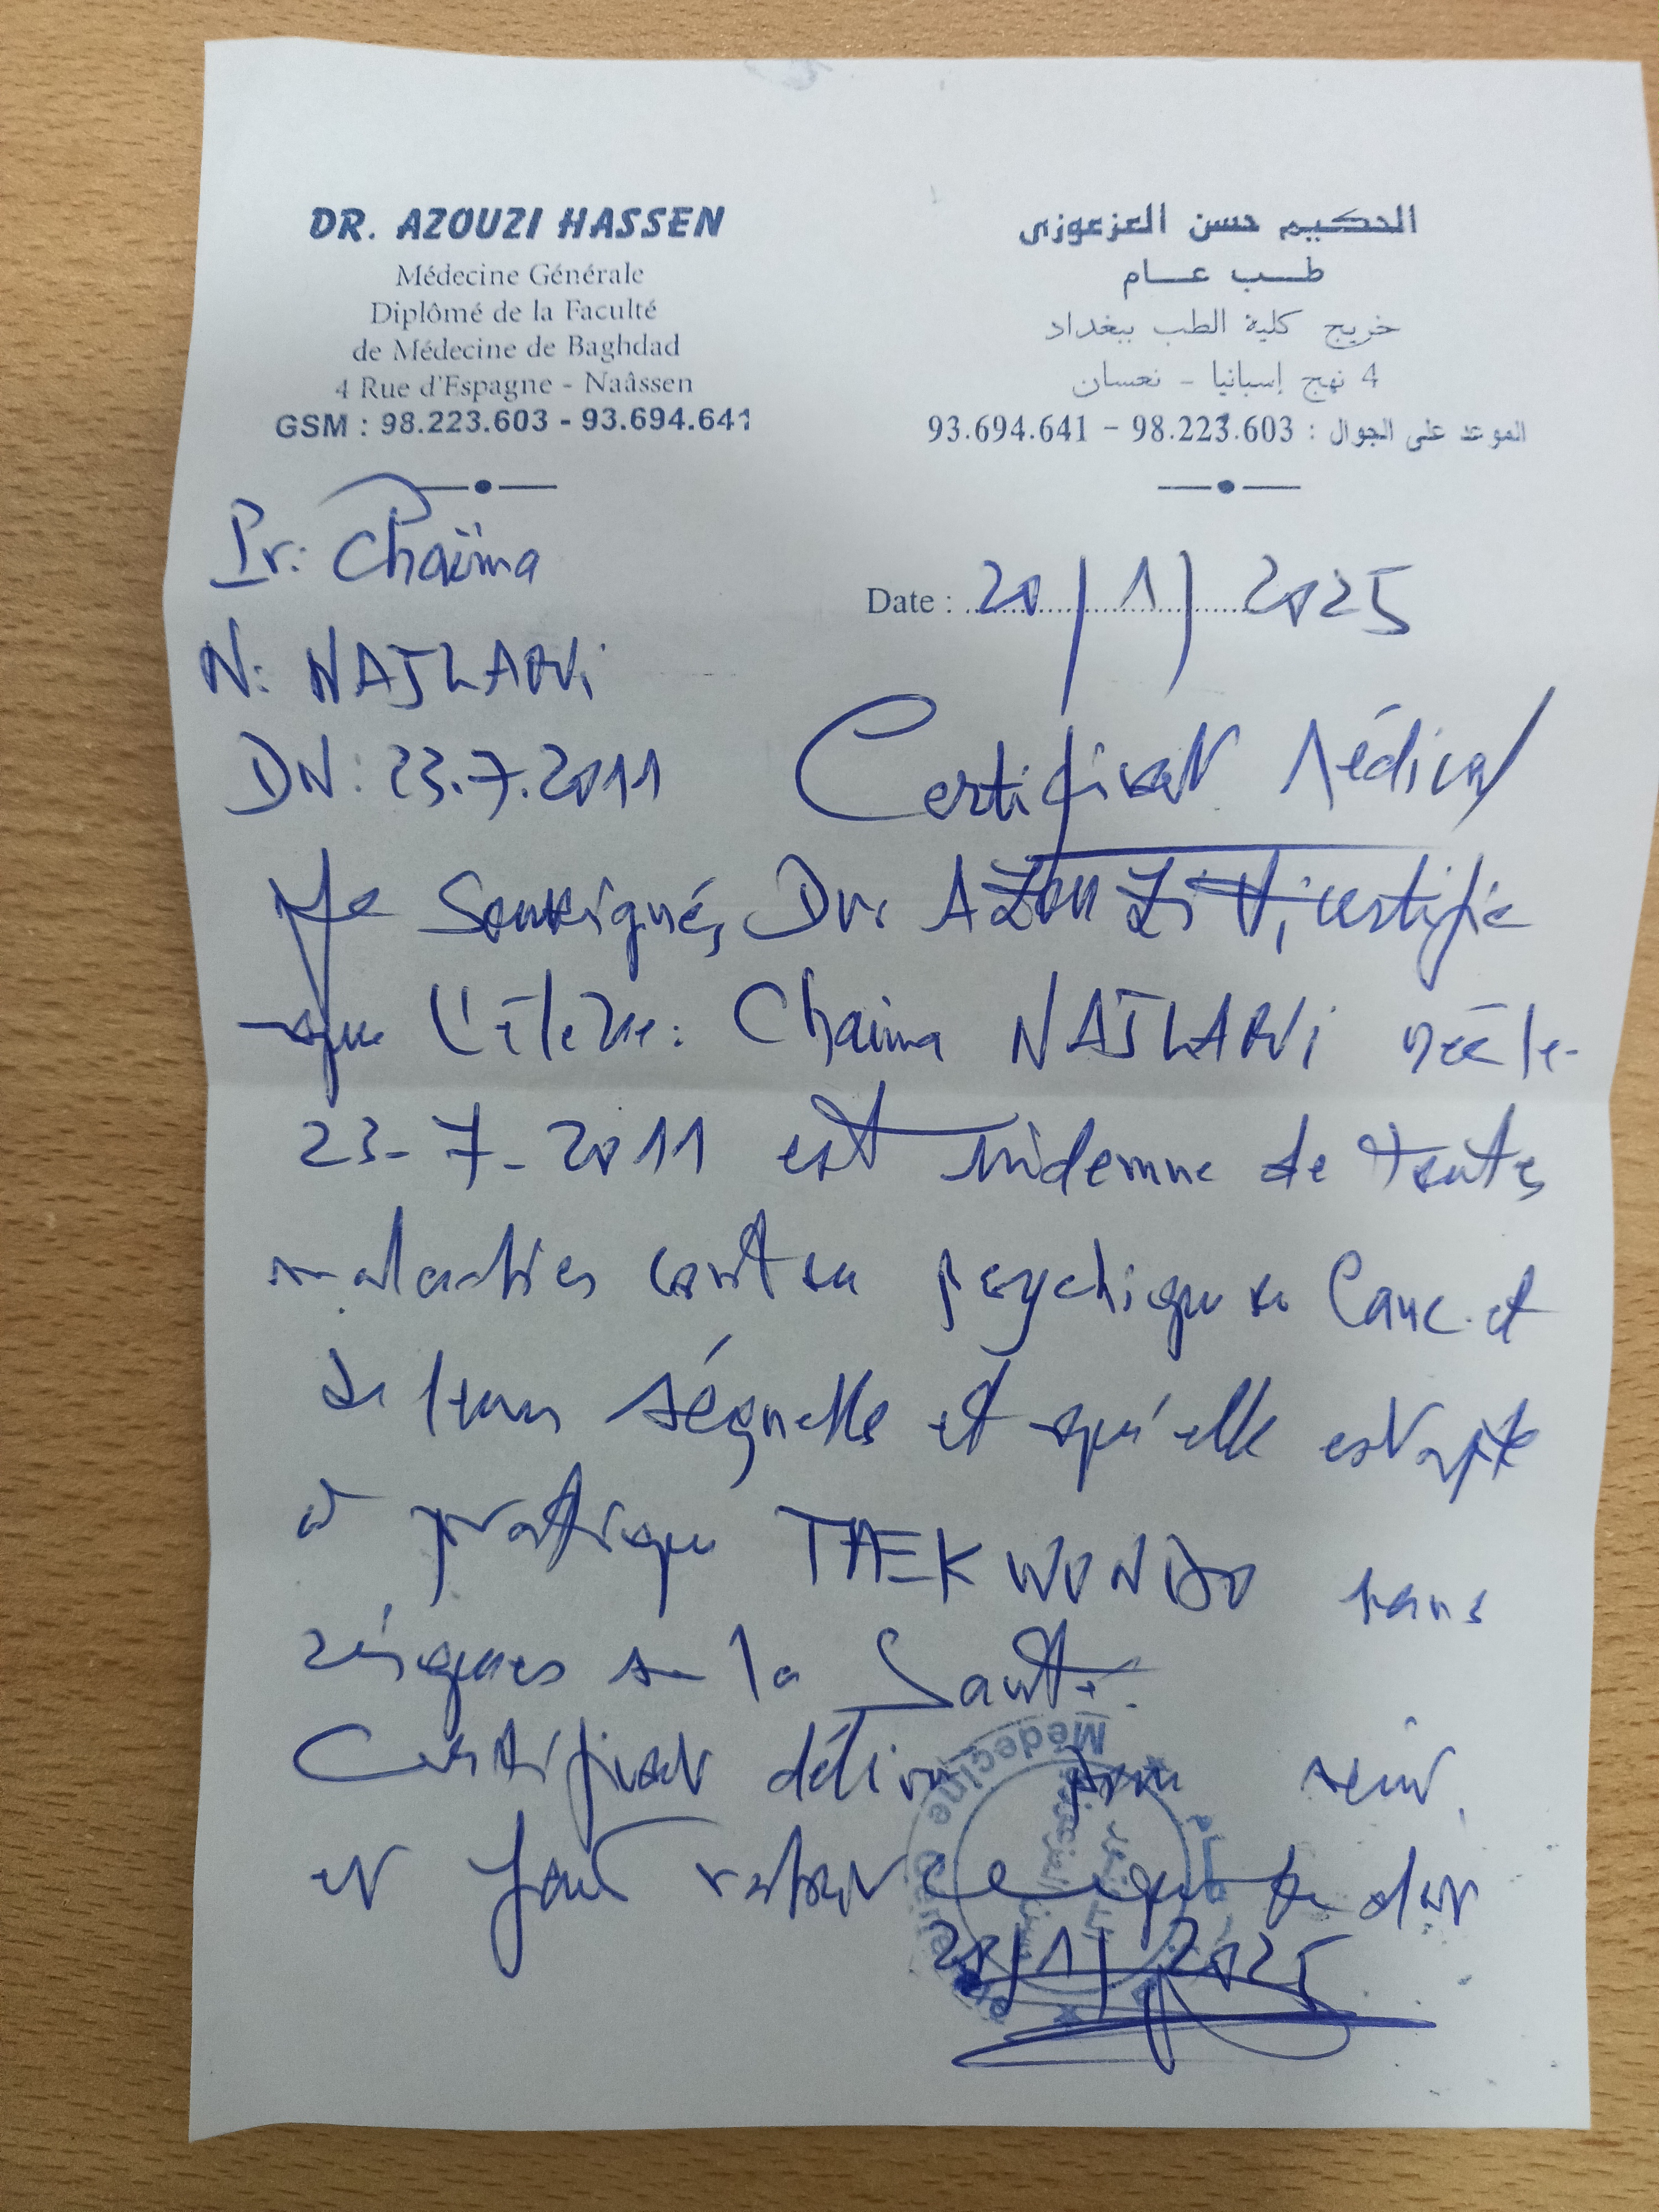 DR. AZOUZI HASSEN
Médecine Générale
Diplômé de la Faculté
de Médecine de Baghdad
4 Rue d'Espagne - Naâssen
GSM : 98.223.603 - 93.694.641
الحكيم حسن العزعوزي
طب عام
خريج كلية الطب ببغداد
4 نهج إسبانيا - نعسان
الموعد على الجوال : 98.223.603 - 93.694.641
Pr: Chaïma
Date : 20/1/2025
N: NAJLAOUi
DN: 23.7.2011
Certificat Médical
Je Soussigné, Dr. AZOUZi H, certifie
que l'élève: Chaima NAJLAOUi née le
23-7-2011 est indemne de toutes
maladies psychique et
de leurs séquelles et qu'elle est apte
à pratiquer TAEKWONDO sans
risques sur la Santé.
Certificat délivré pour servir
et faut valoir ce que de droit
20/1/2025
Médecine Générale